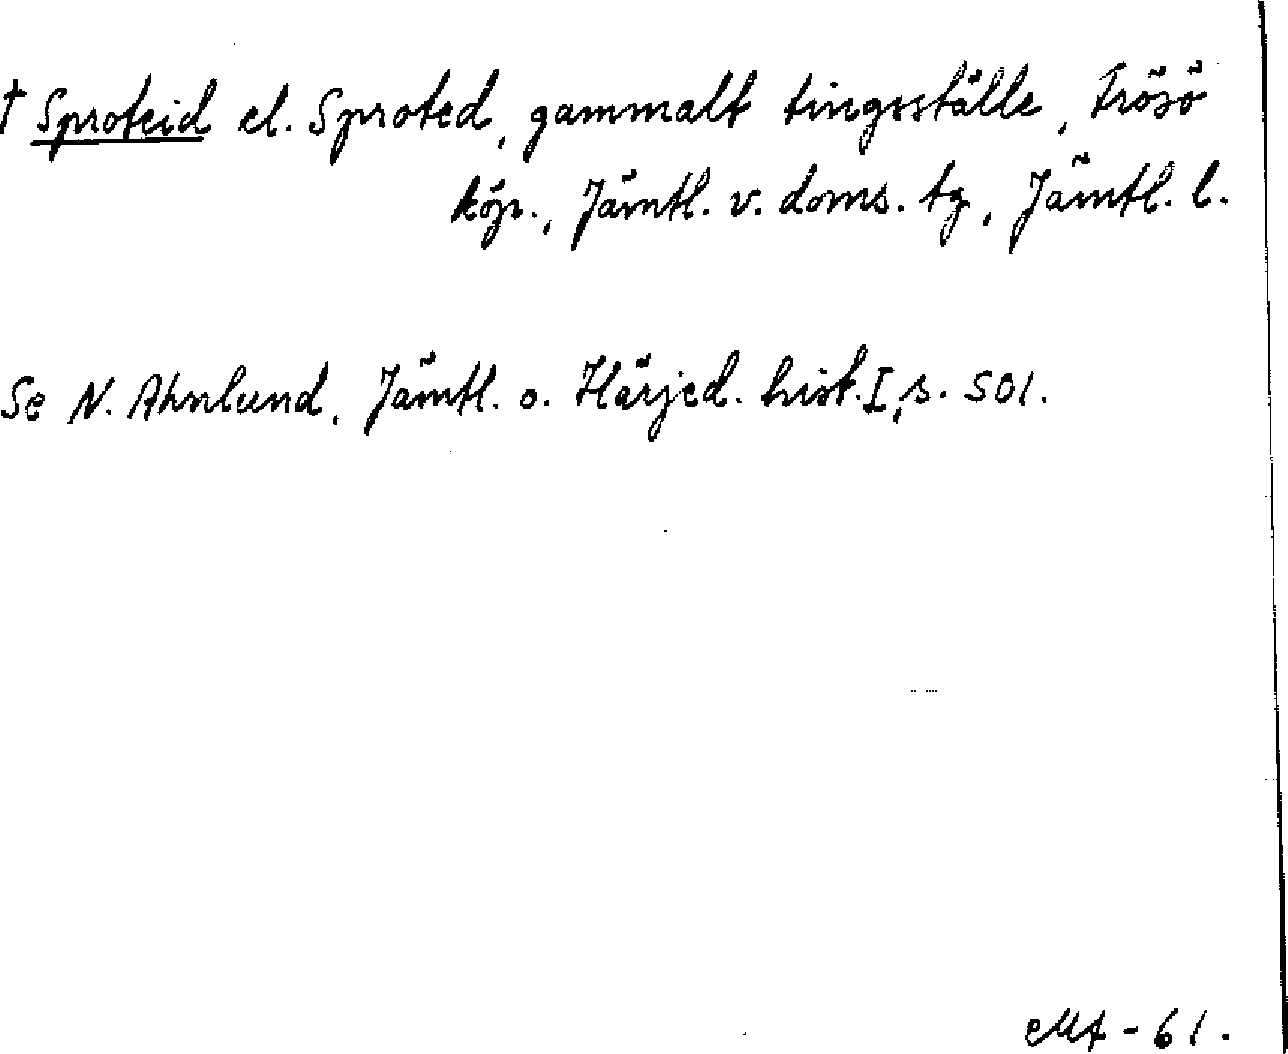 † Sproteid el. Sproted, gammalt tingsställe, Frösö
köp., Jämtl. v. doms. tg, Jämtl. l.
Se N. Ahnlund, Jämtl. o. Härjed. hist. I, s. 501.
-61.